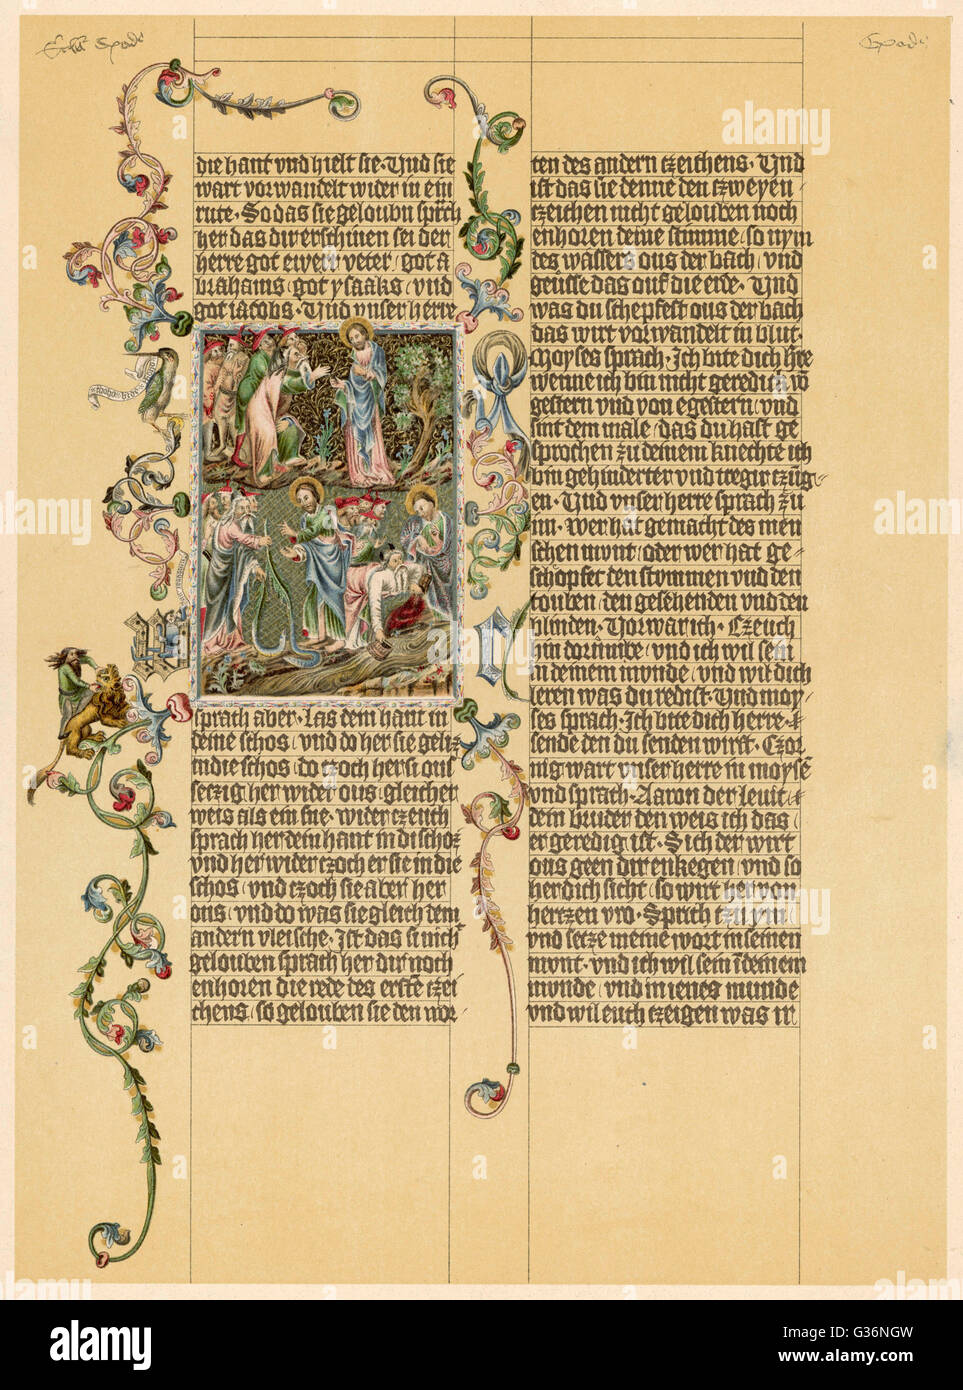 die hant vnd hielt sie · Vnd sie
wart vorwandelt wider in ein
rute · So das sie geloubn sprch
her das dir erschinen sei der
herre got ewer veter / got a
brahams / got ysaaks / vnd
got iacobs · Vnd vnser herre
sprach aber · Las dein hant in
deine schos / vnd do her sie geliz
in die schos / do czoch her si ous
setzig her wider ous / gleicher
weis als ein sne · wider czeuch
sprach her dein hant in di schoz
vnd her wider czoch er sie in die
schos / vnd czoch sie aber her
ous / vnd do was sie gleich dem
andern vleische · Ist das si nicht
gelouben sprach her dir noch
enhoren die rede des erstn czei
chens / so gelouben sie den wor
ten des andern czeichens · Vnd
ist das sie denne den czweyen
czeichen nicht gelouben noch
enhoren deine stimme / so nym
des wassers ous der bach / vnd
geusse das ouf die erde · Vnd
was du schepfest ous der bach
das wirt vorwandelt in blut ·
Moyses sprach · Ich bite dich hre
wenne ich bin nicht geredich vō
gestern vnd von egestern / vnd
sint dem male / das du hast ge
sprochen zu deinem knechte ich
bin gehinderter vnd tregir czūg
en · Vnd vnser herre sprach zu
im · Wer hat gemacht des men
schen mont / oder wer hat ge
schopfet den stummen vnd den
touben / den gesehenden vnd den
blinden · Vorwar ich · Czeuch
hin dorumbe / vnd ich wil sein
in deinem munde / vnd wil dich
leren was du redist · Vnd moy
ses sprach · Ich bite dich herre
sende den du senden wirst · Czor
nig wart vnser herre in moysē
vnd sprach · Aaron der leuit
dein bruder den weis ich das
er geredig ist · Sich der wirt
ous geen dir enkegen / vnd so
her dich sicht / so wirt her von
hertzen vro · Sprich czu ym
vnd setze meine wort in seinen
mont · vnd ich wil sein ī deinem
munde / vnd in ienes munde
vnd wil euch czeigen was ir
a
alamy
alamy
Image ID: G36NGW
www.alamy.com